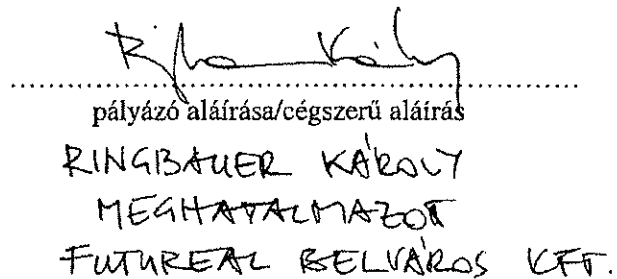 Rjba Káhy
........................................................
pályázó aláírása/cégszerű aláírás
RINGBAUER KÁROLY
MEGHATALMAZOTT
FUTUREAL BELVÁROS KFT.